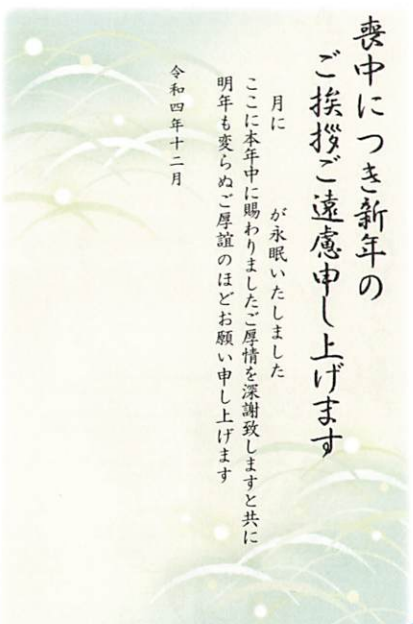 喪中につき新年の
ご挨拶ご遠慮申し上げます
月に　　　が永眠いたしました
ここに本年中に賜わりましたご厚情を深謝致しますと共に
明年も変らぬご厚誼のほどお願い申し上げます
令和四年十二月